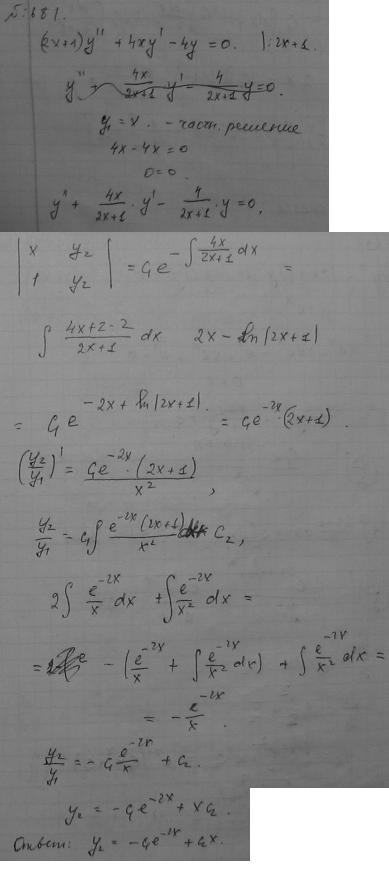 №681.
(2x+1)y'' + 4xy' - 4y = 0. |:2x+1.
y'' + 4x/(2x+1) · y' - 4/(2x+1) · y = 0.
y₁ = x. - частн. решение
4x - 4x = 0
0 = 0.
y'' + 4x/(2x+1) · y' - 4/(2x+1) · y = 0,
|x y₂; 1 y₂| = C₁e^(-∫ 4x/(2x+1) dx) =
∫ (4x+2-2)/(2x+1) dx 2x - ln|2x+1|
= C₁e^(-2x + ln|2x+1|) = C₁e^(-2x)·(2x+1).
(y₂/y₁)' = C₁e^(-2x)·(2x+1)/x²,
y₂/y₁ = C₁∫ e^(-2x)(2x+1)/x² C₂,
2∫ e^(-2x)/x dx + ∫ e^(-2x)/x² dx =
= - (e^(-2x)/x + ∫ e^(-2x)/x² dx) + ∫ e^(-2x)/x² dx =
= - e^(-2x)/x.
y₂/y₁ = - C₁ e^(-2x)/x + C₂.
y₂ = -C₁e^(-2x) + xC₂.
Ответ: y₂ = -C₁e^(-2x) + C₂x.